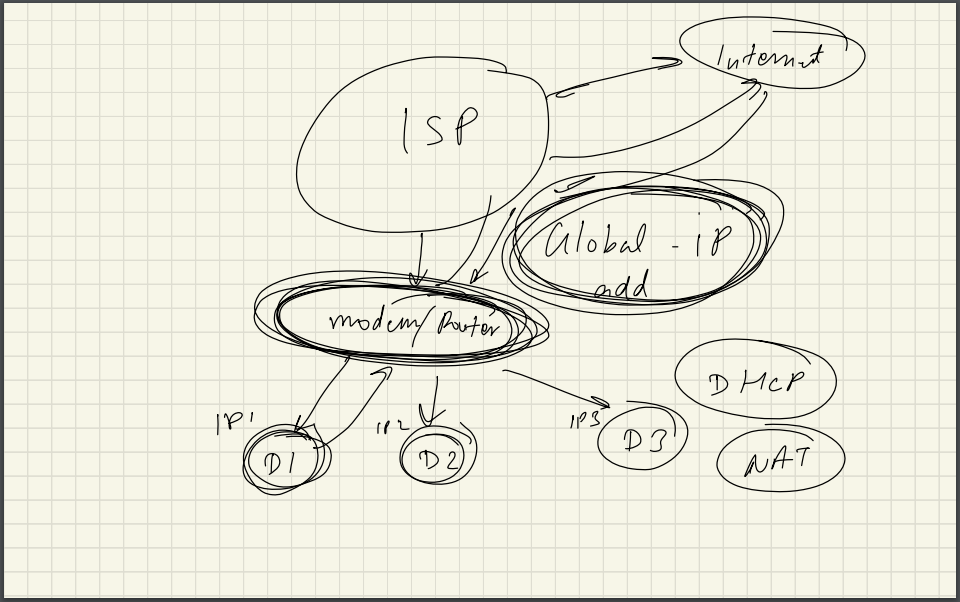 Internet
ISP
Global - iP
add
modem/Router
IP1
IP2
IP3
D1
D2
D3
DHCP
NAT